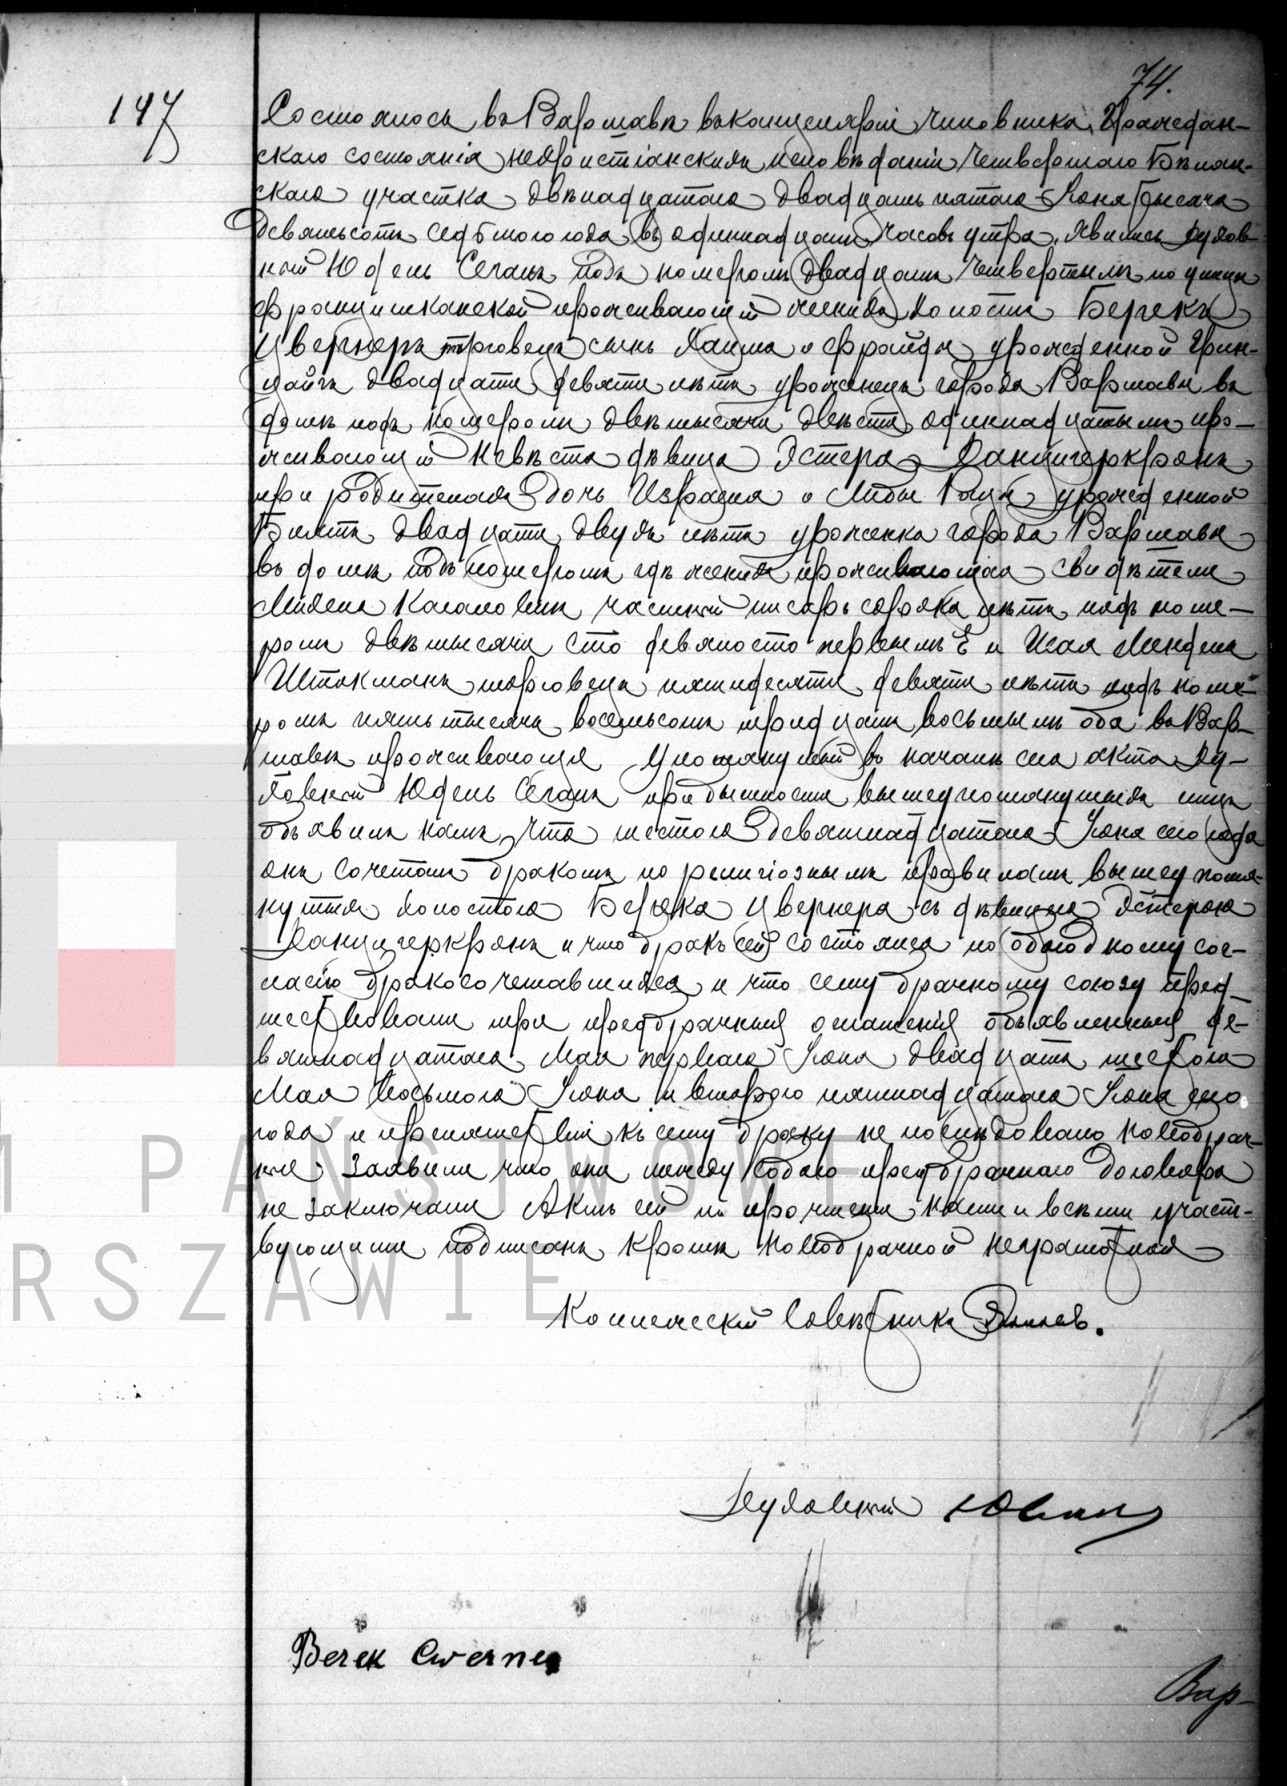 74.
147
Состоялось въ Варшавѣ въ канцеляріи чиновника Граждан-
скаго состоянія нехристіанскихъ исповѣданій четвертаго
скаго участка двѣнадцатаго двадцать пятаго Іюня тысяча
девятьсотъ седьмого года въ одиннадцать часовъ утра. Явились духов-
ный Юдель Сегалъ подъ номеромъ двадцать четвертымъ по улицѣ
Францишканской проживающій женихъ холостъ Берекъ
Цвернеръ торговецъ сынъ Хаима и Фрайды урожденной Грин-
двадцати девяти лѣтъ уроженецъ города Варшавы въ
домѣ подъ номеромъ двѣ тысячи двѣсти одиннадцатымъ про-
живающій Невѣста дѣвица Эстера Данцигеркронъ
при родителяхъ дочь Израиля и Либы урожденной
двадцати двухъ лѣтъ уроженка города Варшавы
въ домѣ подъ номеромъ гдѣ женихъ проживающая Свидѣтели
частный писарь сорока лѣтъ подъ номе-
ромъ двѣ тысячи сто девяносто первымъ Е и Шая Мендель
Штокманъ торговецъ пятидесяти девяти лѣтъ подъ номе-
ромъ пять тысячъ восемьсотъ тридцать восьмымъ оба въ Вар-
шавѣ проживающія Упомянутый въ началѣ сего акта Ду-
ховный Юдель Сегалъ при бытности вышеупомянутыхъ лицъ
объявилъ намъ, что шестого девятнадцатаго Іюня сего года
онъ сочеталъ бракомъ по религіознымъ правиламъ вышеупомя-
нутыхъ холостого Берека Цвернера съ дѣвицею Эстерою
Данцигеркронъ и что бракъ сей состоялся по обоюдному сог-
ласію бракосочетавшихся и что сему брачному союзу пред-
шествовали три предбрачныя оглашенія объявленныя де-
вятнадцатаго Мая перваго Іюня двадцать шестого
Мая восьмого Іюня и второго пятнадцатаго Іюня сего
года и препятствій къ сему браку не послѣдовало Новобрач-
ные заявили что они между собою предбрачнаго договора
не заключали Актъ сей по прочтеніи нами и всѣми участ-
вующими подписанъ кромѣ новобрачной неграмотной
Коллежскій Совѣтникъ
Духовный
Berek Cwerner
Вар-
M PAŃSTWOWE
RSZAWIE